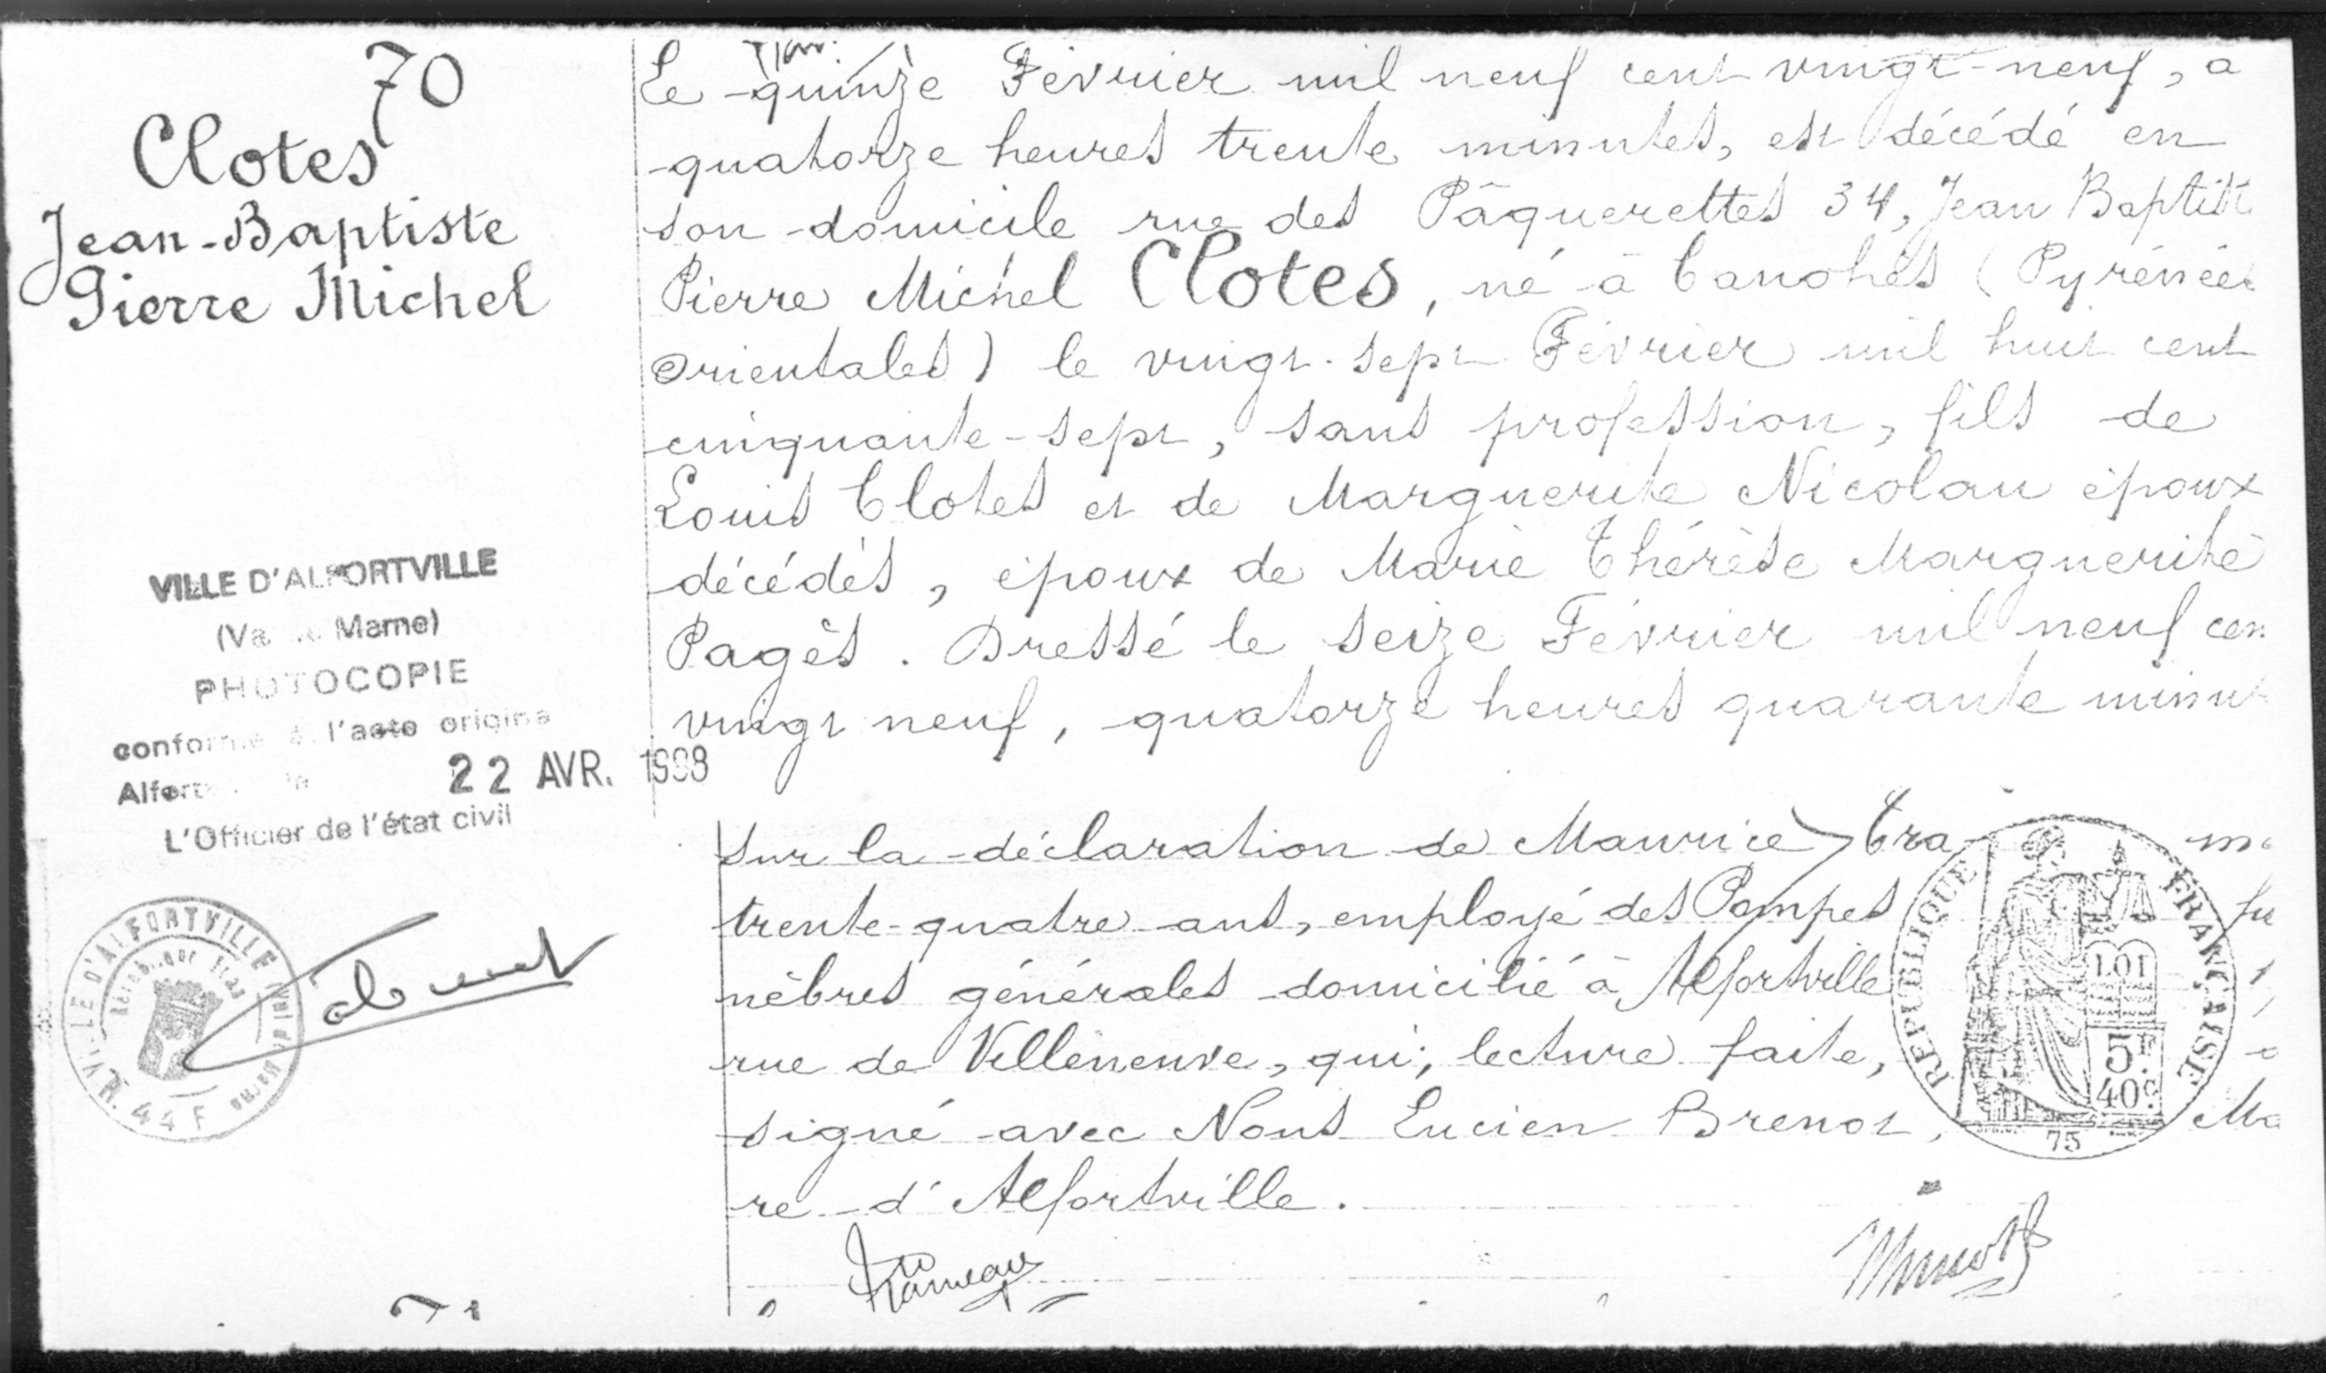 70
Clotes
Jean-Baptiste
Pierre Michel
VILLE D'ALFORTVILLE
(Va Marne)
PHOTOCOPIE
conforme à l'acte origina
Alfort le
22 AVR. 1998
L'Officier de l'état civil
VILLE D'ALFORTVILLE
R. 44 F
Le quinze Février mil neuf cent vingt-neuf, à
quatorze heures trente minutes, est décédé en
son domicile rue des Pâquerettes 34, Jean Baptist
Pierre Michel Clotes, né à Canohès (Pyrénées
Orientales) le vingt-sept Février mil huit cent
cinquante-sept, sans profession, fils de
Louis Clotes et de Marguerite Nicolau époux
décédés, époux de Marie Thérèse Marguerite
Pagès. Dressé le seize Février mil neuf cen
vingt neuf, quatorze heures quarante minut
sur la déclaration de Maurice Tra
trente-quatre ans, employé des Pompes fu
nèbres générales domicilié à Alfortville
rue de Villeneuve, qui, lecture faite,
signé avec Nous Lucien Brenot, Ma
re d'Alfortville.
REPUBLIQUE FRANÇAISE
LOI
5F
40c
75